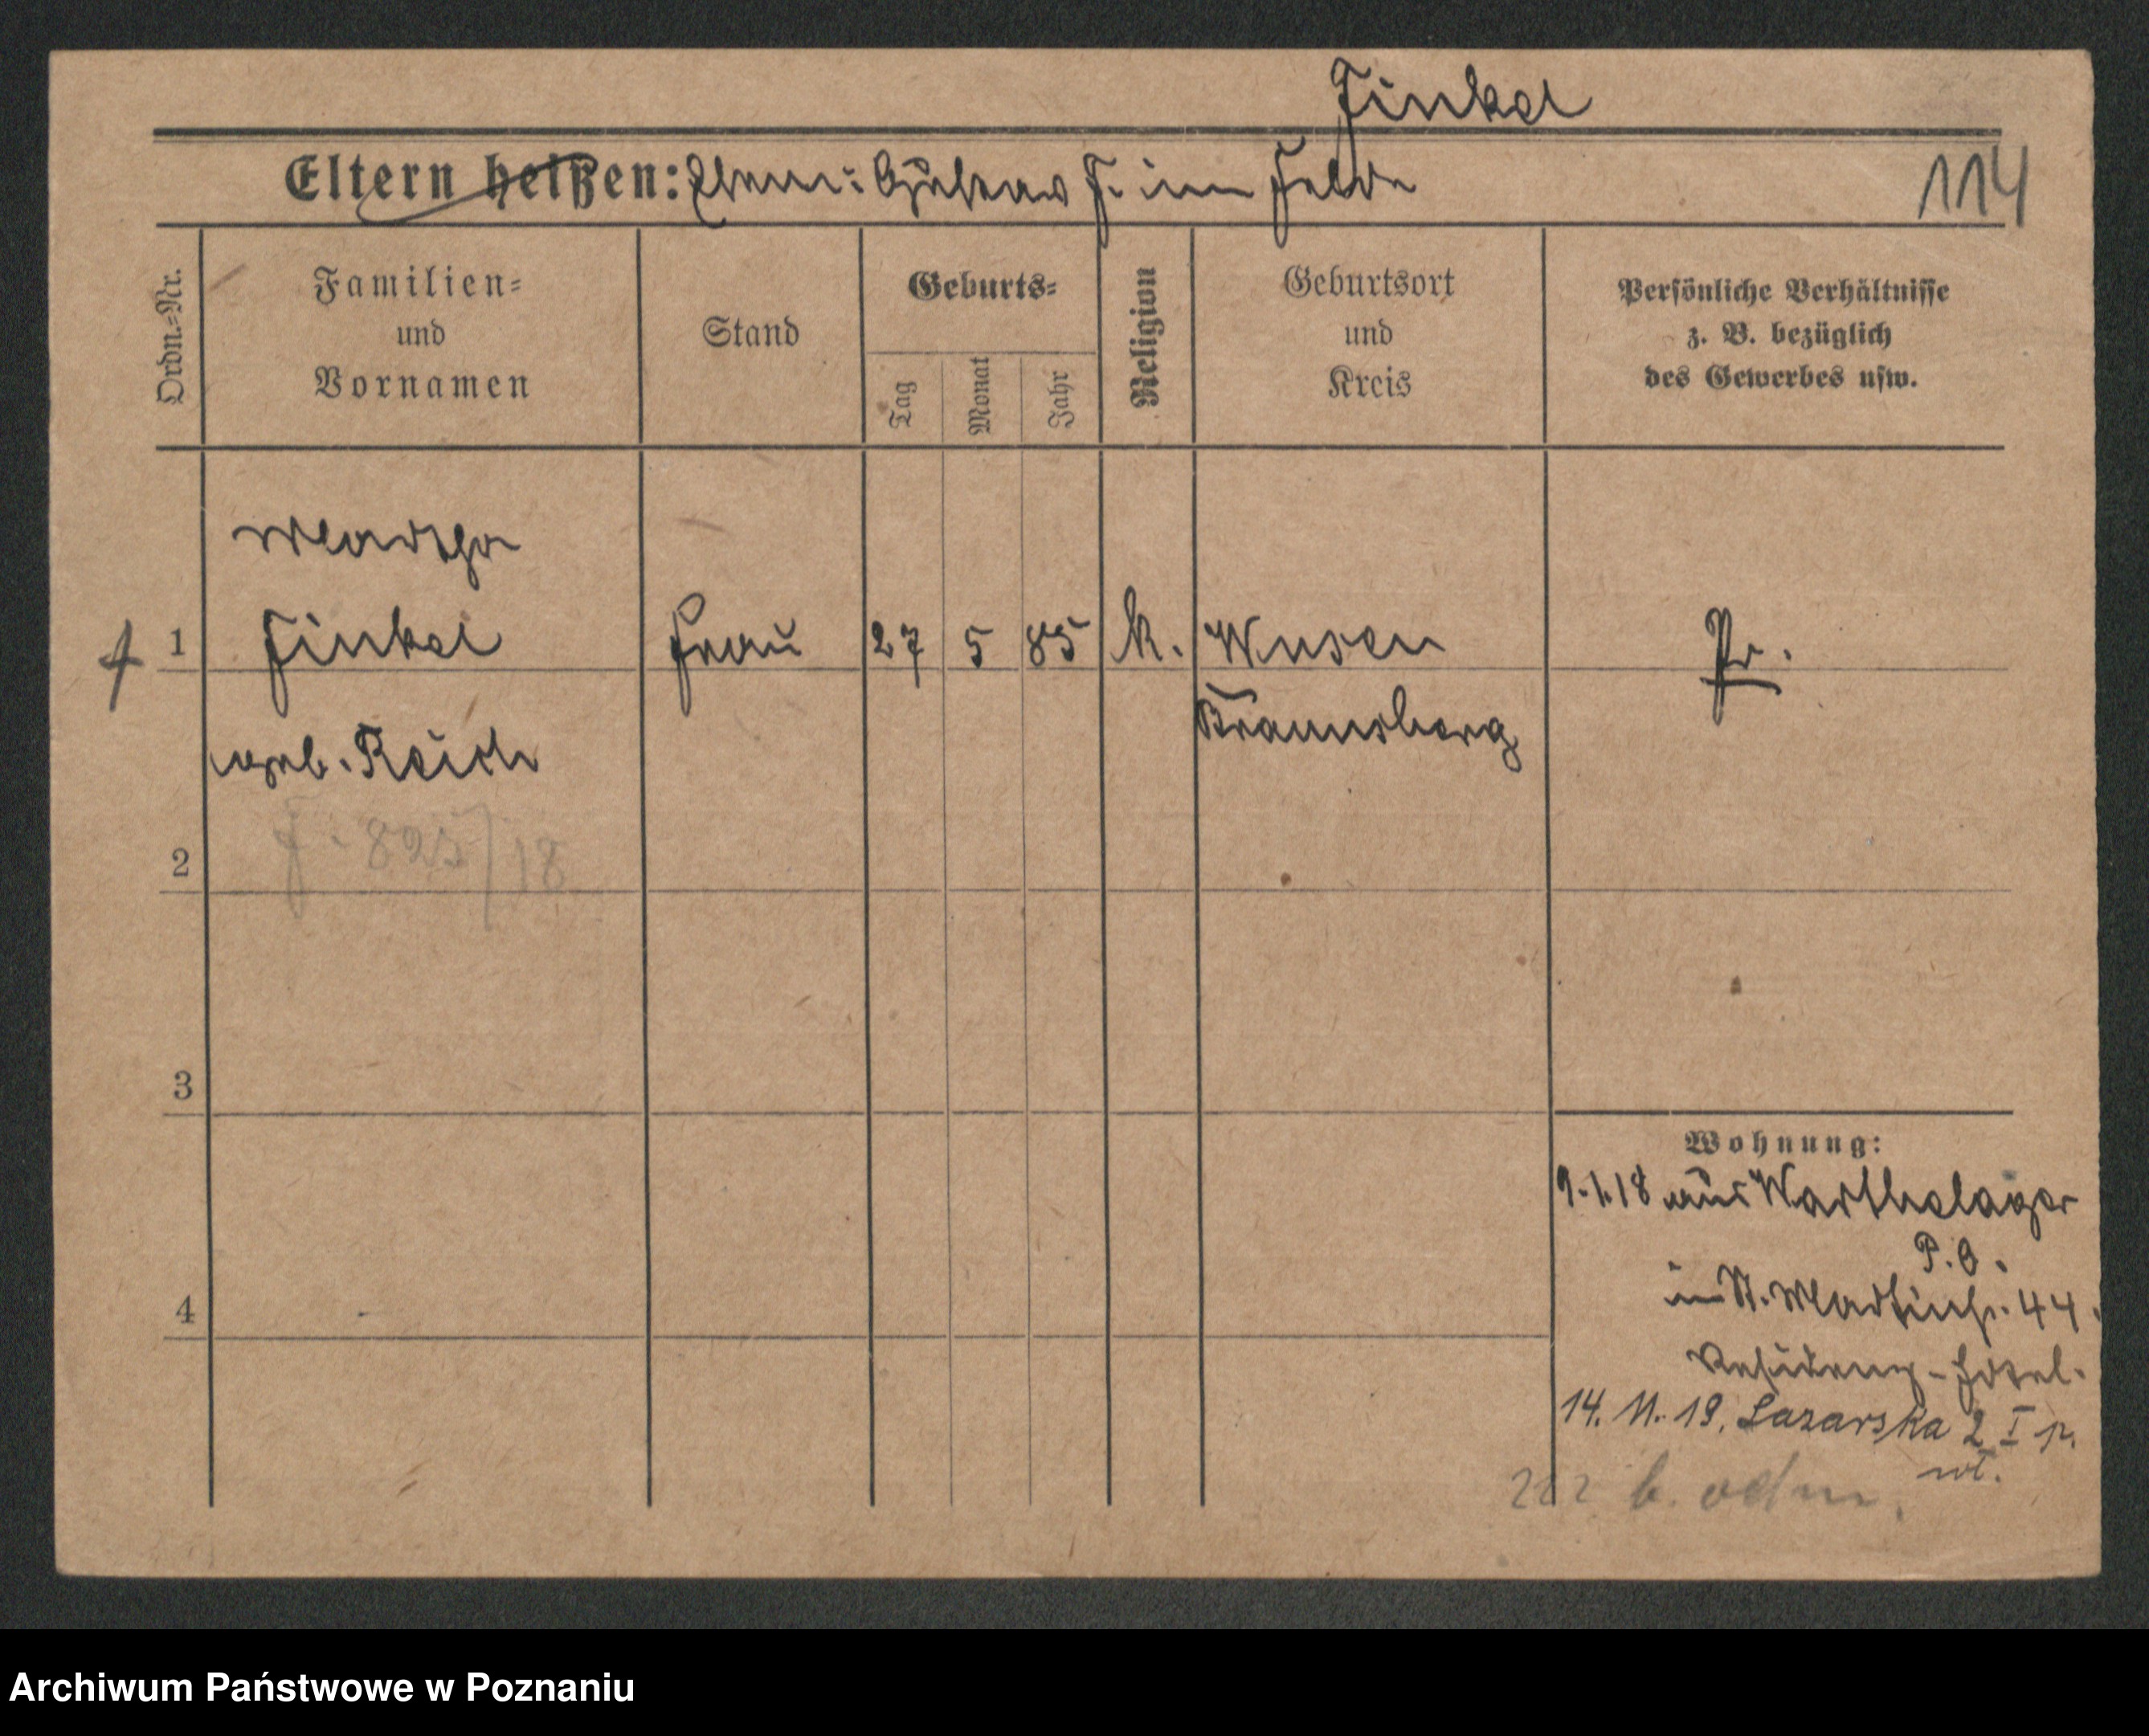 Finkel
Eltern heißen: Ehem: Gustav F. im Felde
114
Ordn.-Nr.
Familien-
und
Vornamen
Stand
Geburts-
Tag
Monat
Jahr
Religion
Geburtsort
und
Kreis
Persönliche Verhältnisse
z. B. bezüglich
des Gewerbes usw.
Martha
1 Finkel Frau 27 5 85 k. Wusen Pr.
geb. Reich Braunsberg
F. 825/18
2
3
4
Wohnung:
9.1.18 aus Warthelager
P. O.
in St. Martinstr. 44.
Residenz-Hotel.
14. 11. 19. Lazarska 2 I p.
wł.
b. odm.
Archiwum Państwowe w Poznaniu